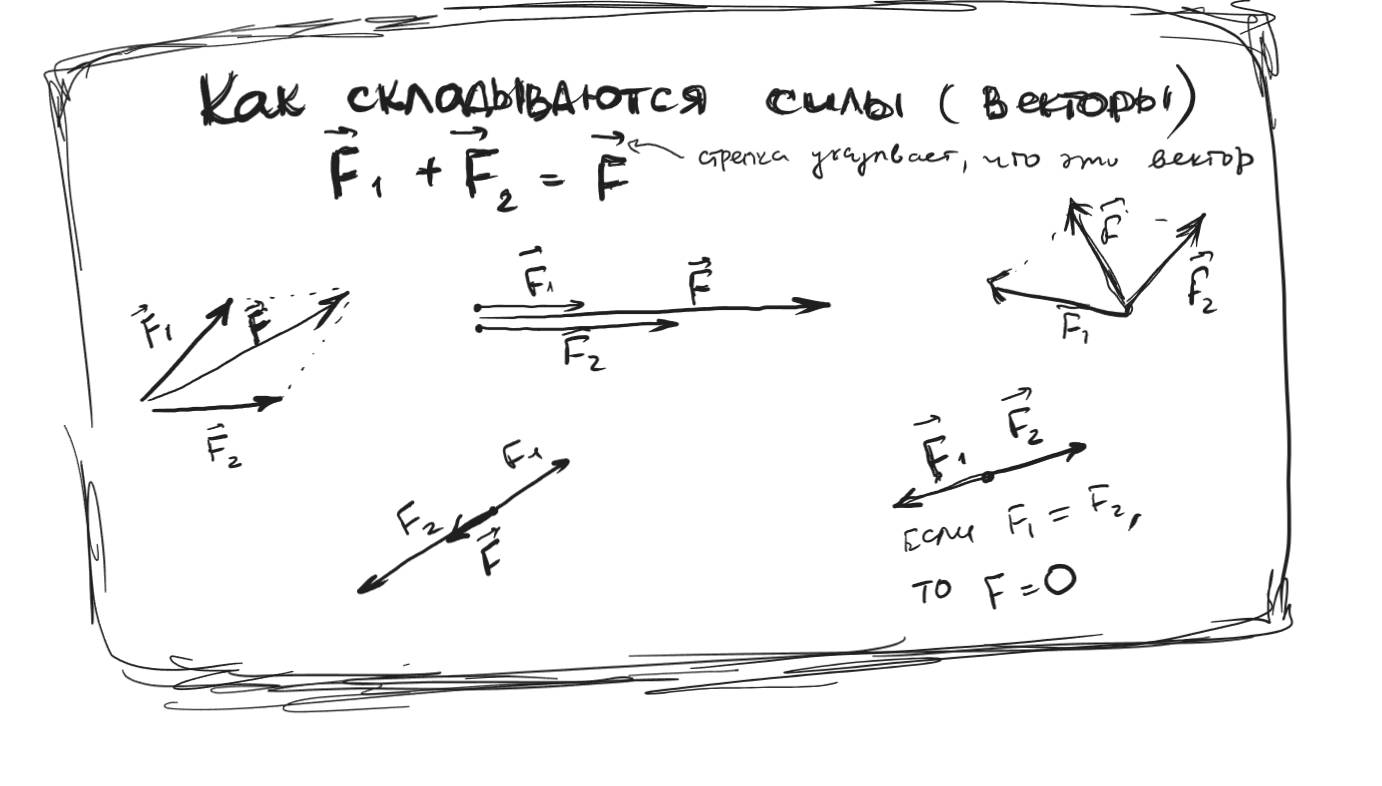 Как складываются силы (векторы)
F₁ + F₂ = F
стрелка указывает, что это вектор
F₁
F
F₂
F₁
F
F₂
F
F₂
F₁
F₁
F₂
F
F₁
F₂
Если F₁ = F₂,
то F = 0